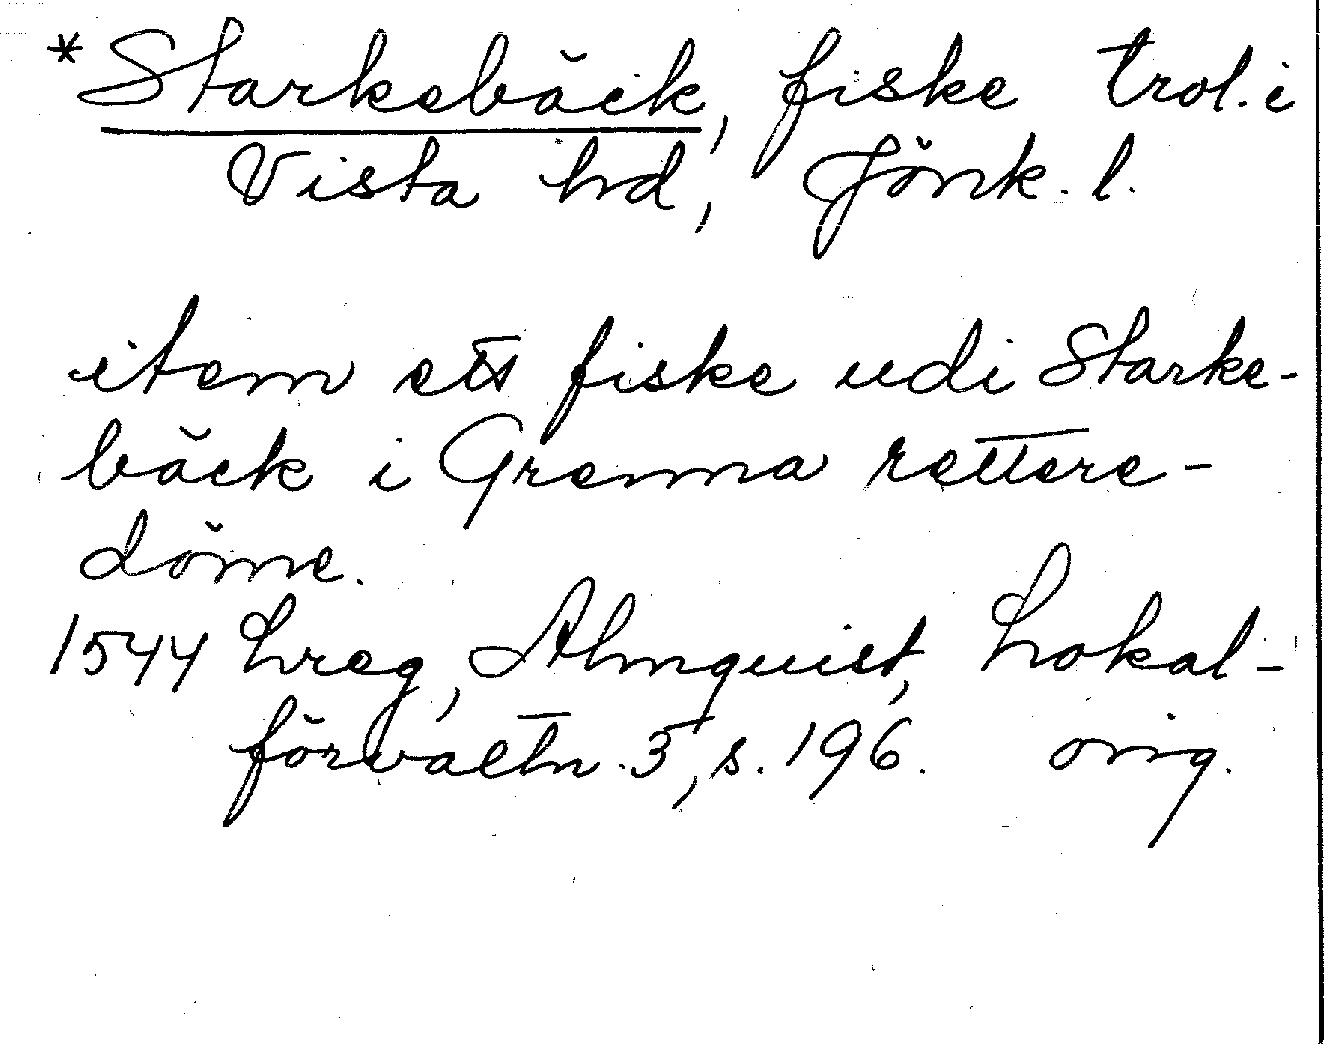 *Starkebäck, fiske trol. i
Vista hd, Jönk. l.
item ett fiske udi Starke-
bäck i Grenna rettere-
döme.
1544 Lreg, Almquist, Lokal-
förvaltn. 3, s. 196. orig.